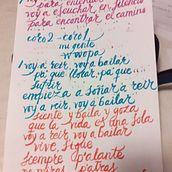 para entender
voy a escuchar el silencio
para encontrar el camino
coro 2 - coro 1
mi gente
w
1 voy a reir, voy a bailar
pa' que llorar, pa' que
sufrir
empieza a soñar, a reir
voy a reir, voy a bailar
siente y baila y goza
que la vida es una sola
voy a reir, voy a bailar
vive, sigue
siempre pa'lante
no mires pa'tras